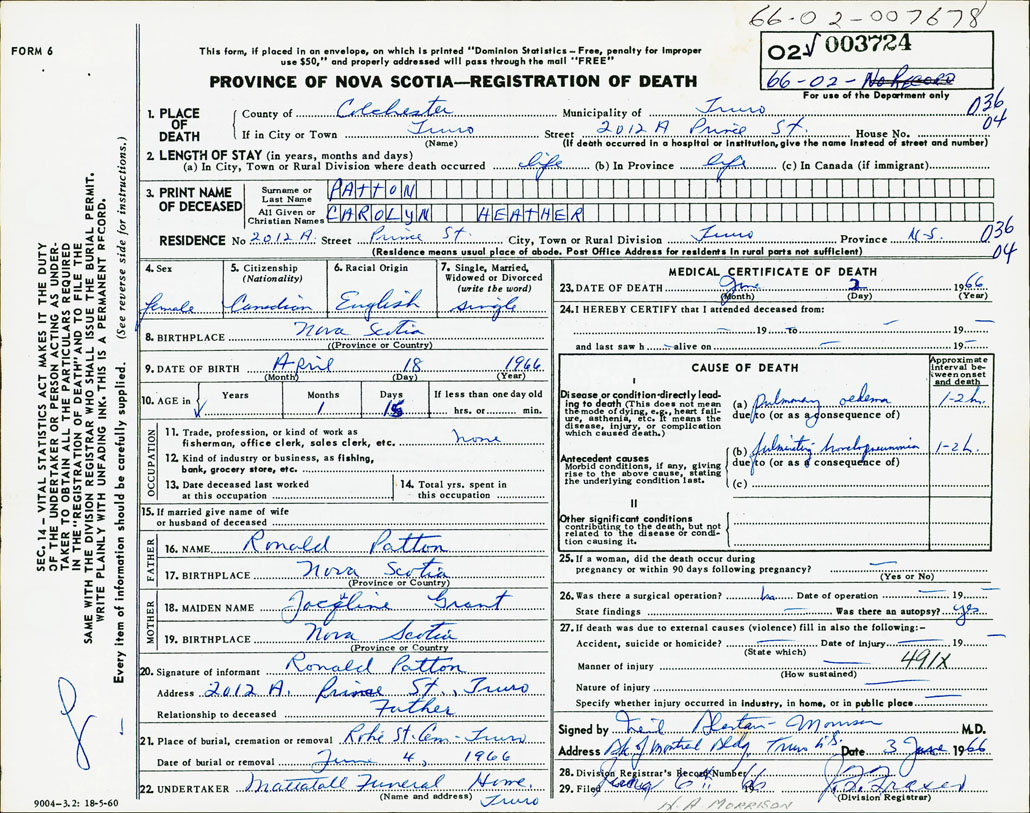 66-02-007678
FORM 6
This form, if placed in an envelope, on which is printed "Dominion Statistics – Free, penalty for improper
use $50," and properly addressed will pass through the mail "FREE"
02√ 003724
66-02- No Record
For use of the Department only
PROVINCE OF NOVA SCOTIA—REGISTRATION OF DEATH
036
04
1. PLACE OF DEATH
County of Colchester Municipality of Truro
If in City or Town Truro Street 2012 A Prince St. House No.
(Name) (If death occurred in a hospital or institution, give the name instead of street and number)
2. LENGTH OF STAY (in years, months and days)
(a) In City, Town or Rural Division where death occurred life (b) In Province life (c) In Canada (if immigrant)
3. PRINT NAME OF DECEASED
Surname or Last Name PATTON
All Given or Christian Names CAROLYN HEATHER
RESIDENCE No 2012 A. Street Prince St. City, Town or Rural Division Truro Province N.S.
036
04
(Residence means usual place of abode. Post Office Address for residents in rural parts not sufficient)
4. Sex
female
5. Citizenship
(Nationality)
Canadian
6. Racial Origin
English
7. Single, Married,
Widowed or Divorced
(write the word)
single
8. BIRTHPLACE Nova Scotia
((Province or Country)
9. DATE OF BIRTH April 18 1966
(Month) (Day) (Year)
10. AGE in Years Months 1 Days 15 If less than one day old
hrs. or min.
OCCUPATION
11. Trade, profession, or kind of work as
fisherman, office clerk, sales clerk, etc. none
12. Kind of industry or business, as fishing,
bank, grocery store, etc.
13. Date deceased last worked
at this occupation
14. Total yrs. spent in
this occupation
15. If married give name of wife
or husband of deceased
FATHER
16. NAME Ronald Patton
17. BIRTHPLACE Nova Scotia
(Province or Country)
MOTHER
18. MAIDEN NAME Jacqline Grant
19. BIRTHPLACE Nova Scotia
(Province or Country
20. Signature of informant Ronald Patton
Address 2012 A. Prince St., Truro
Relationship to deceased Father
21. Place of burial, cremation or removal Robie St. Cem- Truro
Date of burial or removal June 4, 1966
22. UNDERTAKER Mattatall Funeral Home,
(Name and address) Truro
9004-3.2: 18-5-60
MEDICAL CERTIFICATE OF DEATH
23. DATE OF DEATH June 2 1966
(Month) (Day) (Year)
24. I HEREBY CERTIFY that I attended deceased from:
— 19 — to — 19 —
and last saw h — alive on — 19 —
CAUSE OF DEATH
Approximate
interval be-
tween onset
and death
I
Disease or condition directly lead-
ing to death (This does not mean
the mode of dying, e.g., heart fail-
ure, asthenia, etc. It means the
disease, injury, or complication
which caused death.)
(a) Pulmonary oedema 1-2 h.
due to (or as a consequence of)
Antecedent causes
Morbid conditions, if any, giving
rise to the above cause, stating
the underlying condition last.
(b) fulminating bronchopneumonia 1-2 h.
due to (or as a consequence of)
(c)
II
Other significant conditions
contributing to the death, but not
related to the disease or condi-
tion causing it.
25. If a woman, did the death occur during
pregnancy or within 90 days following pregnancy? —
(Yes or No)
26. Was there a surgical operation? no Date of operation — 19 —
State findings — Was there an autopsy? yes
27. If death was due to external causes (violence) fill in also the following:-
Accident, suicide or homicide? — Date of injury — 19 —
(State which)
Manner of injury — 491X
(How sustained)
Nature of injury —
Specify whether injury occurred in industry, in home, or in public place —
Signed by Neil Morrison M.D.
Address Bk of Montreal Bldg Truro N.S. Date 3 June 1966
28. Division Registrar's Record Number
29. Filed 6th 1966
(Division Registrar)
H A MORRISON
SEC. 14 – VITAL STATISTICS ACT MAKES IT THE DUTY
OF THE UNDERTAKER OR PERSON ACTING AS UNDER-
TAKER TO OBTAIN ALL THE PARTICULARS REQUIRED
IN THE "REGISTRATION OF DEATH" AND TO FILE THE
SAME WITH THE DIVISION REGISTRAR WHO SHALL ISSUE THE BURIAL PERMIT.
WRITE PLAINLY WITH UNFADING INK. THIS IS A PERMANENT RECORD.
Every item of information should be carefully supplied. (See reverse side for instructions.)